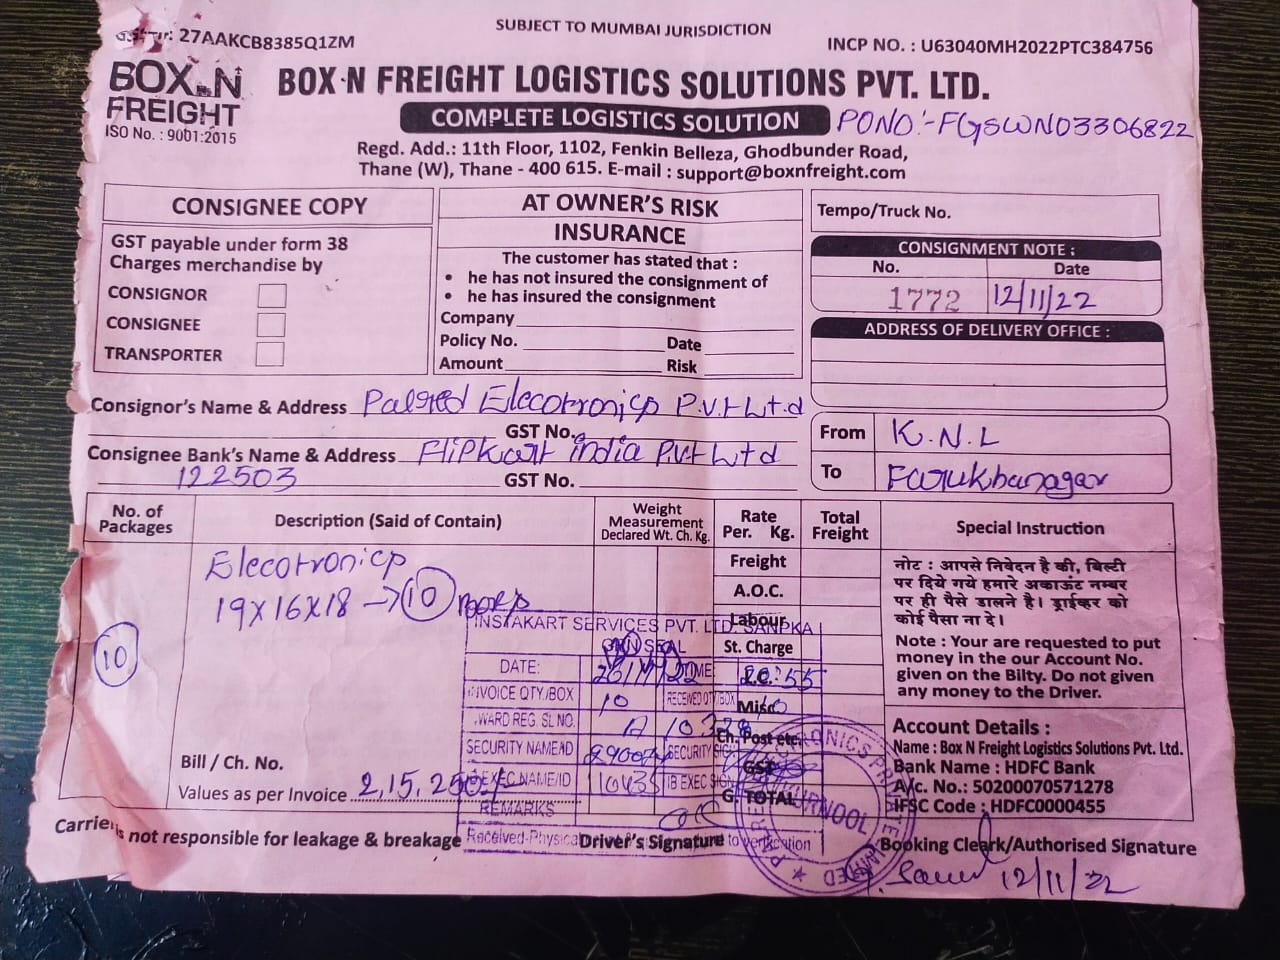 SUBJECT TO MUMBAI JURISDICTION
27AAKCB8385Q1ZM
INCP NO. : U63040MH2022PTC384756
BOX N FREIGHT
ISO No. : 9001:2015
BOX N FREIGHT LOGISTICS SOLUTIONS PVT. LTD.
COMPLETE LOGISTICS SOLUTION
PONO:-FGSWN03306822
Regd. Add.: 11th Floor, 1102, Fenkin Belleza, Ghodbunder Road,
Thane (W), Thane - 400 615. E-mail : support@boxnfreight.com
CONSIGNEE COPY
GST payable under form 38
Charges merchandise by
CONSIGNOR
CONSIGNEE
TRANSPORTER
AT OWNER'S RISK
INSURANCE
The customer has stated that :
• he has not insured the consignment of
• he has insured the consignment
Company
Policy No. Date
Amount Risk
Tempo/Truck No.
CONSIGNMENT NOTE :
No. Date
1772 12/11/22
ADDRESS OF DELIVERY OFFICE :
Consignor's Name & Address Palred Elecotronics P.v.t Lt.d
GST No.
Consignee Bank's Name & Address Flipkart india Pvt Ltd
122503 GST No.
From K.N.L
To Farukhanagar
No. of Packages
Description (Said of Contain)
Weight Measurement
Declared Wt. Ch. Kg.
Rate Per. Kg.
Total Freight
Special Instruction
Elecotronics
19X16X18 → 10
10
Freight
A.O.C.
Labour
St. Charge
Misc
Ch. Post etc.
GST
G. TOTAL
नोट : आपसे निवेदन है की, बिल्टी
पर दिये गये हमारे अकाऊंट नम्बर
पर ही पैसे डालने है। ड्राईव्हर को
कोई पैसा ना दे।
Note : Your are requested to put
money in the our Account No.
given on the Bilty. Do not given
any money to the Driver.
Account Details :
Name : Box N Freight Logistics Solutions Pvt. Ltd.
Bank Name : HDFC Bank
A/c. No.: 50200070571278
IFSC Code : HDFC0000455
INSTAKART SERVICES PVT. LTD. SANPKA
SEAL
DATE: TIME
INVOICE QTY/BOX 10 RECEIVED QTY/BOX
WARD REG. SL NO.
SECURITY NAME/ID SECURITY SIGN
EXEC NAME/ID IB EXEC SIGN
REMARKS
Bill / Ch. No.
Values as per Invoice 2,15,250/-
Carrier is not responsible for leakage & breakage
Driver's Signature
Booking Cleark/Authorised Signature
12/11/22